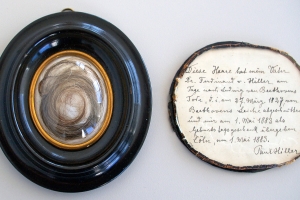 Diese Haare hat mein Vater
Dr. Ferdinand v. Hiller am
Tage nach Ludwig van Beethovens
Tode, d. i. am 27. März 1827, von
Beethovens Leiche abgeschnitten
und mir am 1. Mai 1883 als
Geburtstagsgeschenk übergeben
Cöln, am 1. Mai 1883.
Paul Hiller